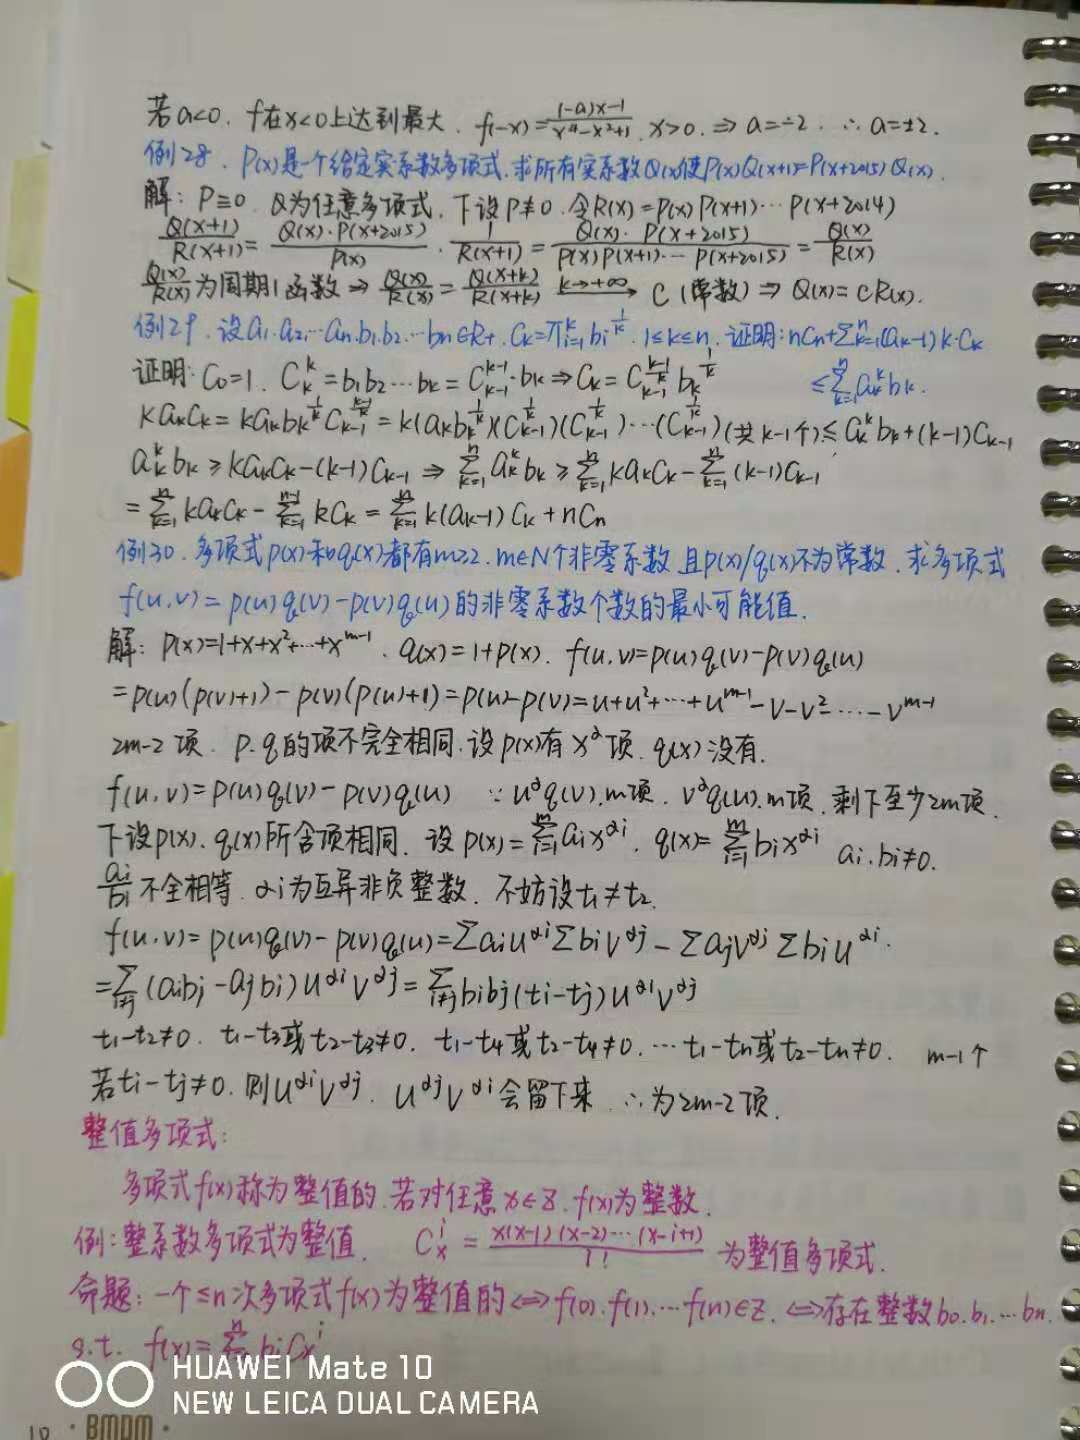 若a<0. f在x<0上达到最大. f(-x)=\frac{(-a)x-1}{x^4-x^2+1}. x>0. ⇒ a=-2. ∴ a=±2.
例28. P(x)是一个给定实系数多项式.求所有实系数Q(x)使P(x)Q(x+1)=P(x+2015)Q(x).
解: P≡0. Q为任意多项式. 下设P≢0. 令R(x)=P(x)P(x+1)…P(x+2014)
\frac{Q(x+1)}{R(x+1)}=\frac{Q(x)·P(x+2015)}{P(x)}·\frac{1}{R(x+1)}=\frac{Q(x)·P(x+2015)}{P(x)P(x+1)…P(x+2015)}=\frac{Q(x)}{R(x)}
\frac{Q(x)}{R(x)}为周期1函数 ⇒ \frac{Q(x)}{R(x)}=\frac{Q(x+k)}{R(x+k)} \xrightarrow{k→+∞} C (常数) ⇒ Q(x)=CR(x).
例29. 设a_1.a_2…a_n.b_1.b_2…b_n∈R_+. C_k=π_{i=1}^k b_i^{\frac{1}{k}}. 1≤k≤n. 证明: nC_n+Σ_{k=1}^n(a_k-1)k·C_k
≤\sum_{k=1}^n a_k^k b_k.
证明: C_0=1. C_k^k=b_1b_2…b_k=C_{k-1}^{k-1}·b_k⇒C_k=C_{k-1}^{\frac{k-1}{k}}b_k^{\frac{1}{k}}
ka_kC_k=ka_kb_k^{\frac{1}{k}}C_{k-1}^{\frac{k-1}{k}}=k(a_kb_k^{\frac{1}{k}})(C_{k-1}^{\frac{1}{k}})(C_{k-1}^{\frac{1}{k}})…(C_{k-1}^{\frac{1}{k}})(共k-1个)≤a_k^kb_k+(k-1)C_{k-1}
a_k^kb_k≥ka_kC_k-(k-1)C_{k-1} ⇒ \sum_{k=1}^n a_k^kb_k≥\sum_{k=1}^n ka_kC_k-\sum_{k=1}^n(k-1)C_{k-1}
=\sum_{k=1}^n ka_kC_k-\sum_{k=1}^{n-1}kC_k=\sum_{k=1}^n k(a_k-1)C_k+nC_n
例30. 多项式p(x)和q(x)都有m≥2.m∈N个非零系数.且p(x)/q(x)不为常数.求多项式
f(u,v)=p(u)q(v)-p(v)q(u)的非零系数个数的最小可能值.
解: p(x)=1+x+x^2+…+x^{m-1}. q(x)=1+p(x). f(u,v)=p(u)q(v)-p(v)q(u)
=p(u)(p(v)+1)-p(v)(p(u)+1)=p(u)-p(v)=u+u^2+…+u^{m-1}-v-v^2-…-v^{m-1}
2m-2项. p.q的项不完全相同.设p(x)有x^α项. q(x)没有.
f(u,v)=p(u)q(v)-p(v)q(u) ∵ u^αq(v).m项. v^αq(u).m项.剩下至少2m项.
下设p(x).q(x)所含项相同. 设p(x)=\sum_{i=1}^m a_ix^{αi}. q(x)=\sum_{i=1}^m b_ix^{αi} a_i.b_i≠0.
\frac{a_i}{b_i}不全相等. αi为互异非负整数. 不妨设t_1≠t_2.
f(u,v)=p(u)q(v)-p(v)q(u)=Σa_iu^{αi}Σb_iv^{αj}-Σa_jv^{αj}Σb_iu^{αi}.
=\sum_{i≠j}(a_ib_j-a_jb_i)u^{αi}v^{αj}=\sum_{i≠j}b_ib_j(t_i-t_j)u^{αi}v^{αj}
t_1-t_2≠0. t_1-t_3或t_2-t_3≠0. t_1-t_4或t_2-t_4≠0.…t_1-t_n或t_2-t_n≠0. m-1个
若t_i-t_j≠0.则u^{αi}v^{αj}. u^{αj}v^{αi}会留下来.∴为2m-2项.
整值多项式:
多项式f(x)称为整值的.若对任意x∈Z.f(x)为整数.
例:整系数多项式为整值. C_x^i=\frac{x(x-1)(x-2)…(x-i+1)}{i!} 为整值多项式.
命题:一个≤n次多项式f(x)为整值的⇔f(0).f(1).…f(n)∈Z.⇔存在整数b_0.b_1.…b_n.
s.t. f(x)=\sum^n b_iC_x^i
HUAWEI Mate 10
NEW LEICA DUAL CAMERA
10 · BMDM ·